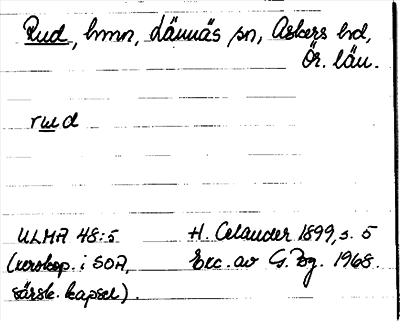 Rud, hmn, Lännäs sn, Askers hd,
Ör. län.
rud
ULMA 48:5 H. Celander 1899, s. 5
(xerokop. i SOA, Exc. av G. Bg. 1968.
särsk. kapsel).